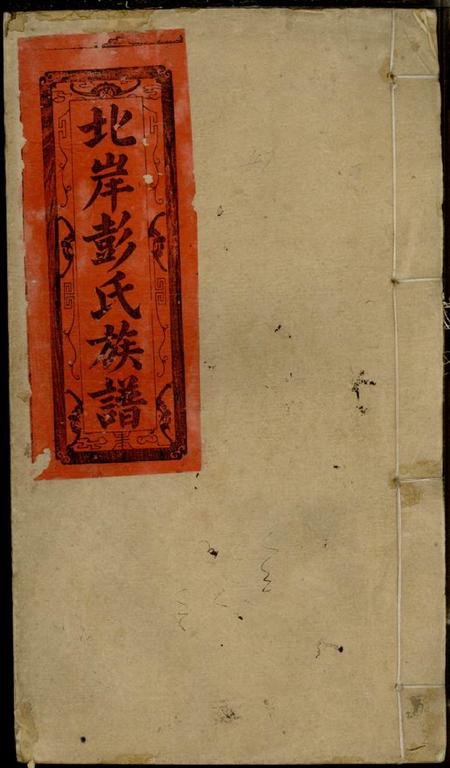 北岸彭氏族譜